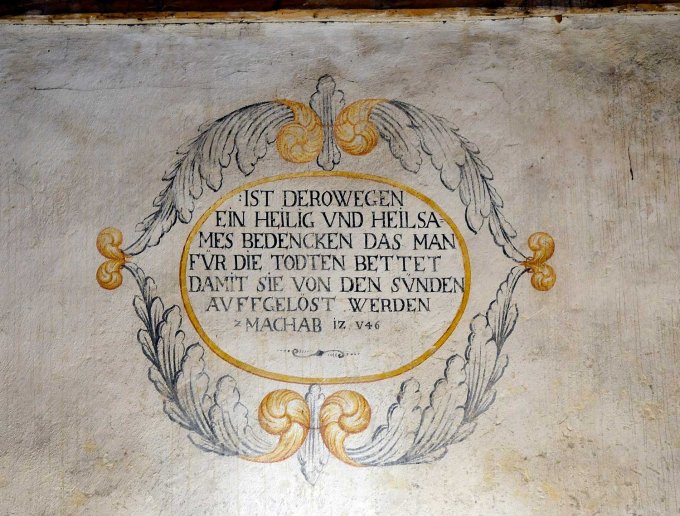 :IST DEROWEGEN
EIN HEILIG VND HEILSA=
MES BEDENCKEN DAS MAN
FÜR DIE TODTEN BETTET
DAMIT SIE VON DEN SÜNDEN
AVFFGELÖST WERDEN
2 MACHAB 12 V46